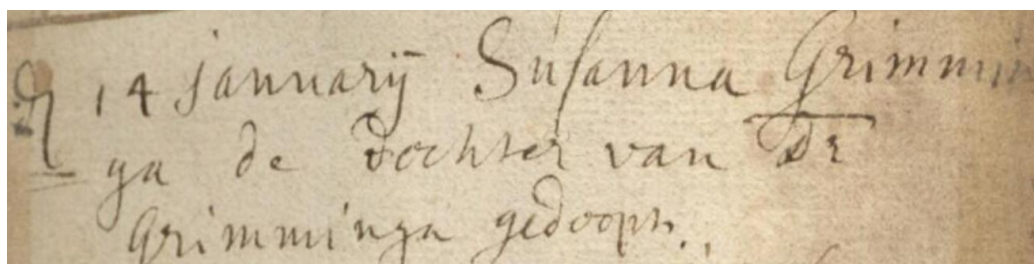 14 januarij Susanna Grimmin
ga de dochter van Dr
Grimminga gedoopt.